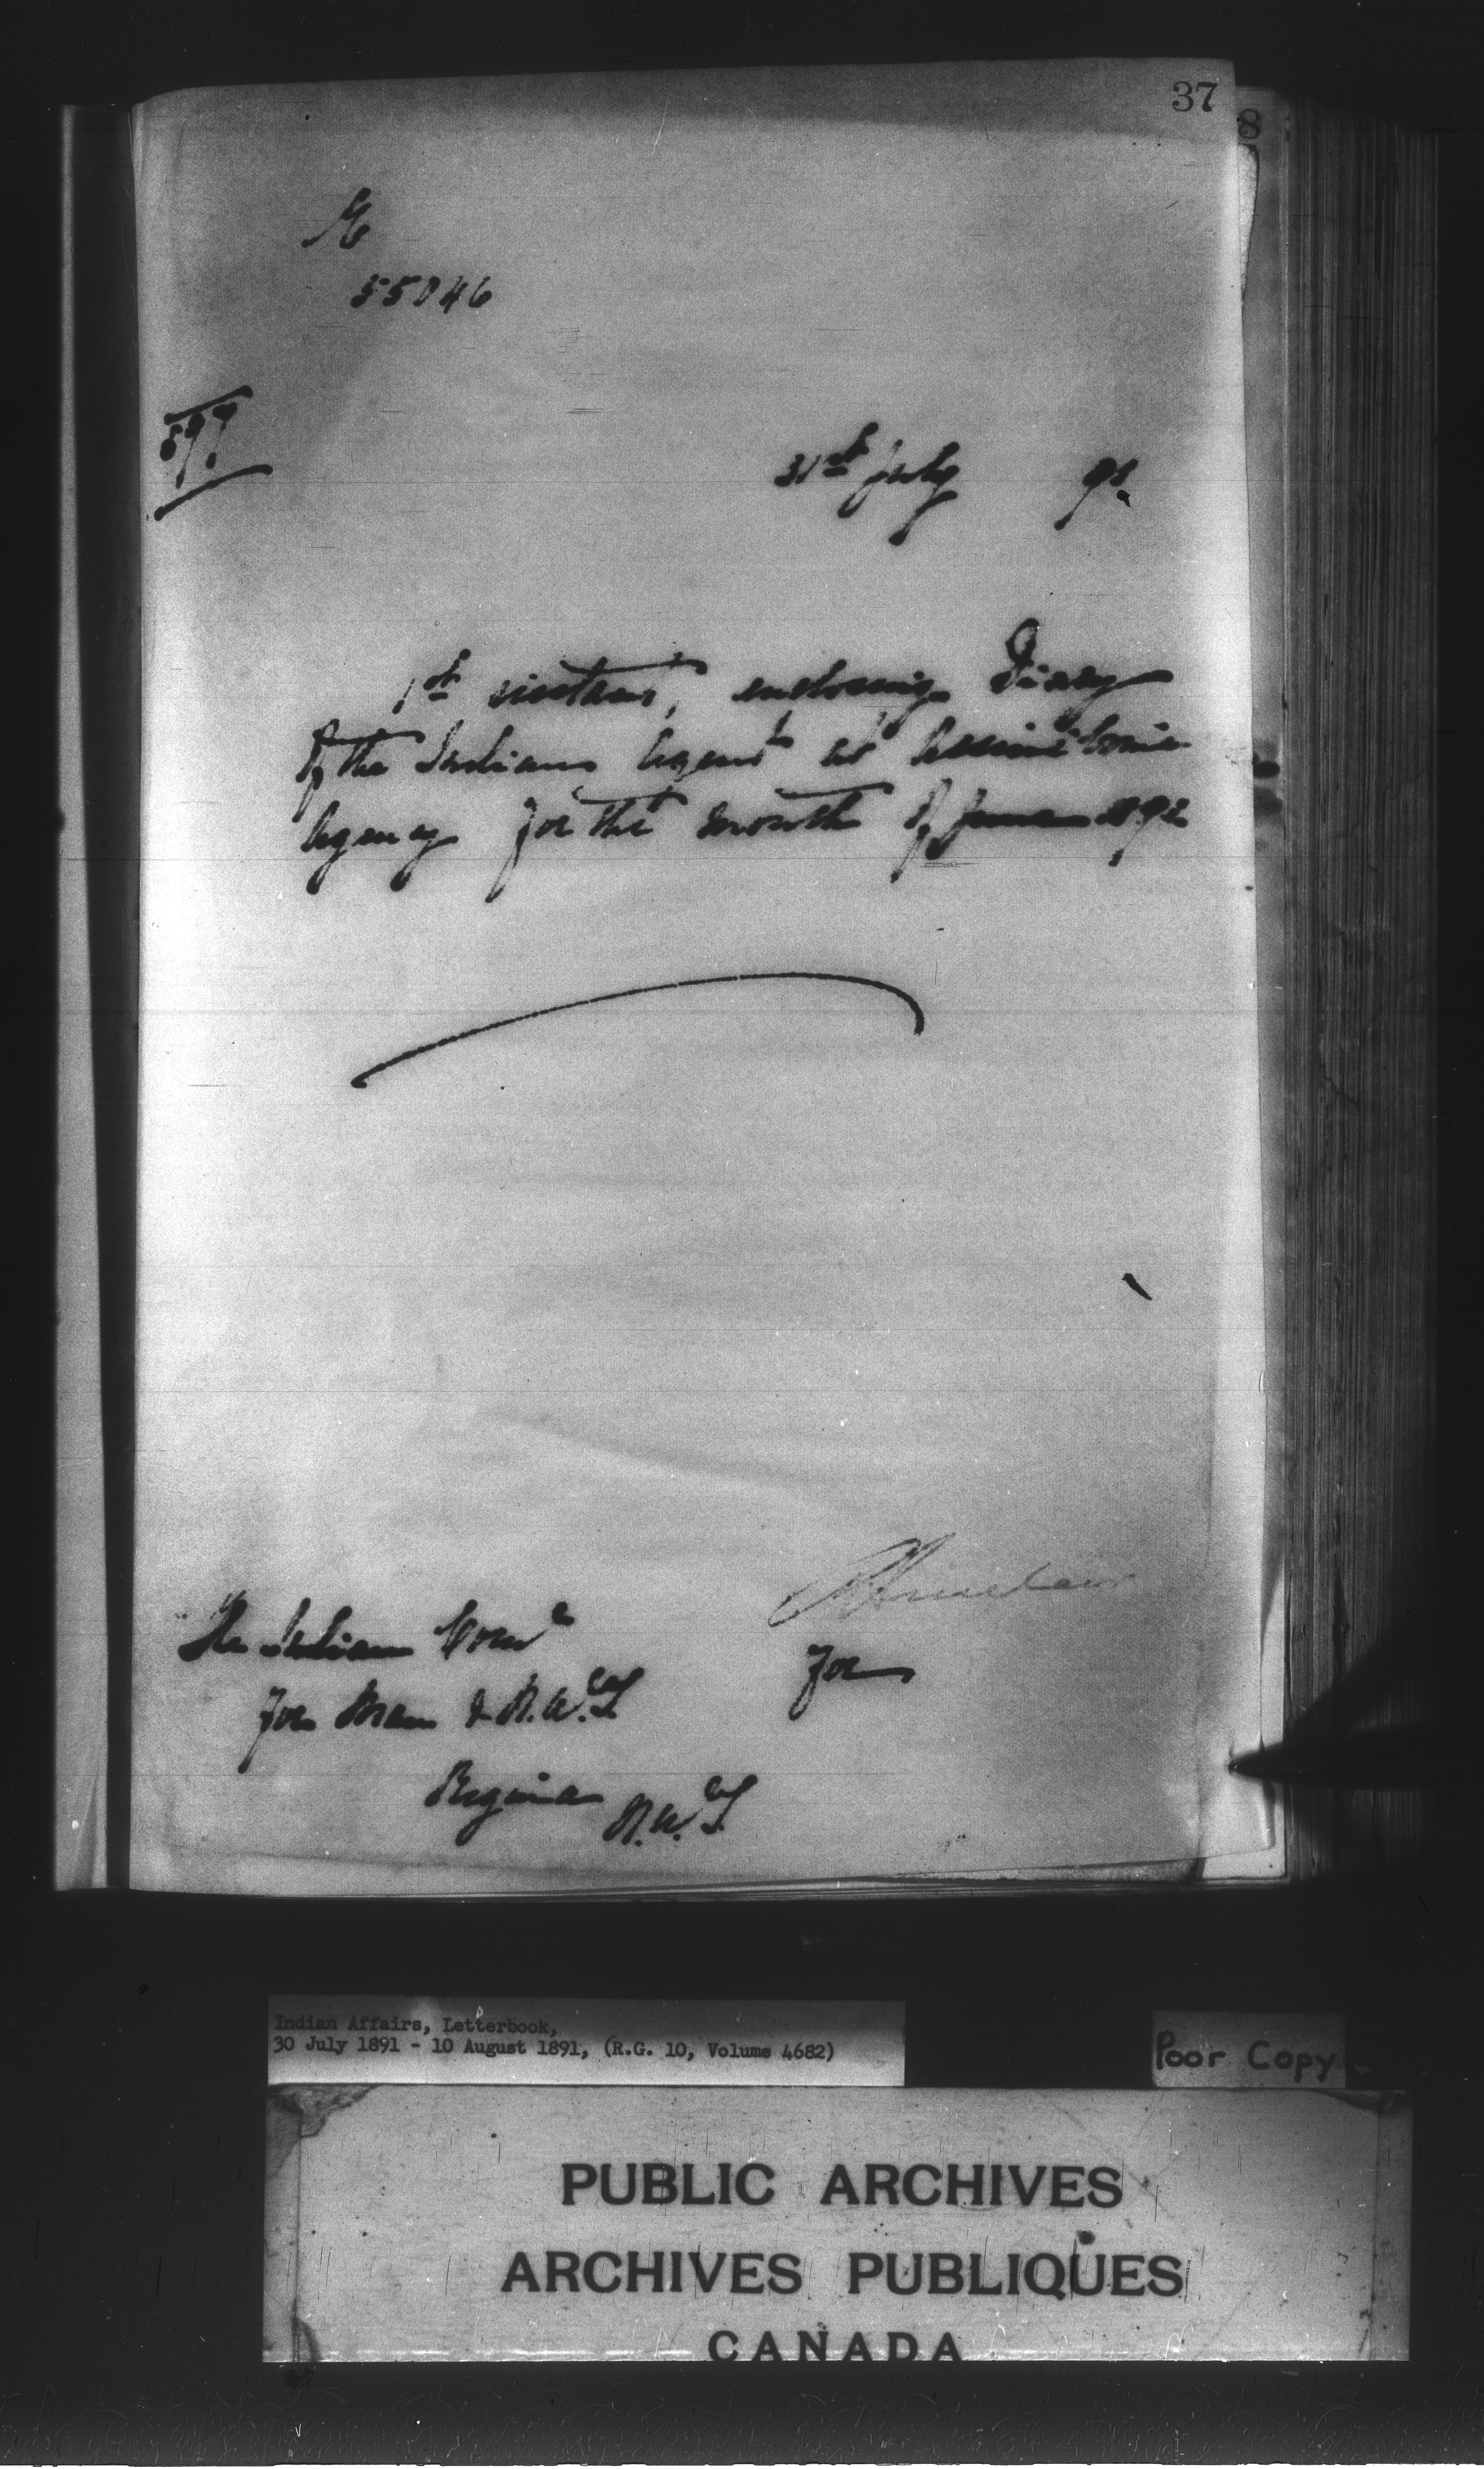 37
8
55046
31st July 91.
1st instant, enclosing Diary
of the Indian Agent at Assiniboine
Agency for the month of June 1892
The Indian Comr
for Man & N.W.T
for
Regina N.W.T
Indian Affairs, Letterbook,
30 July 1891 - 10 August 1891, (R.G. 10, Volume 4682)
Poor Copy
PUBLIC ARCHIVES
ARCHIVES PUBLIQUES
CANADA